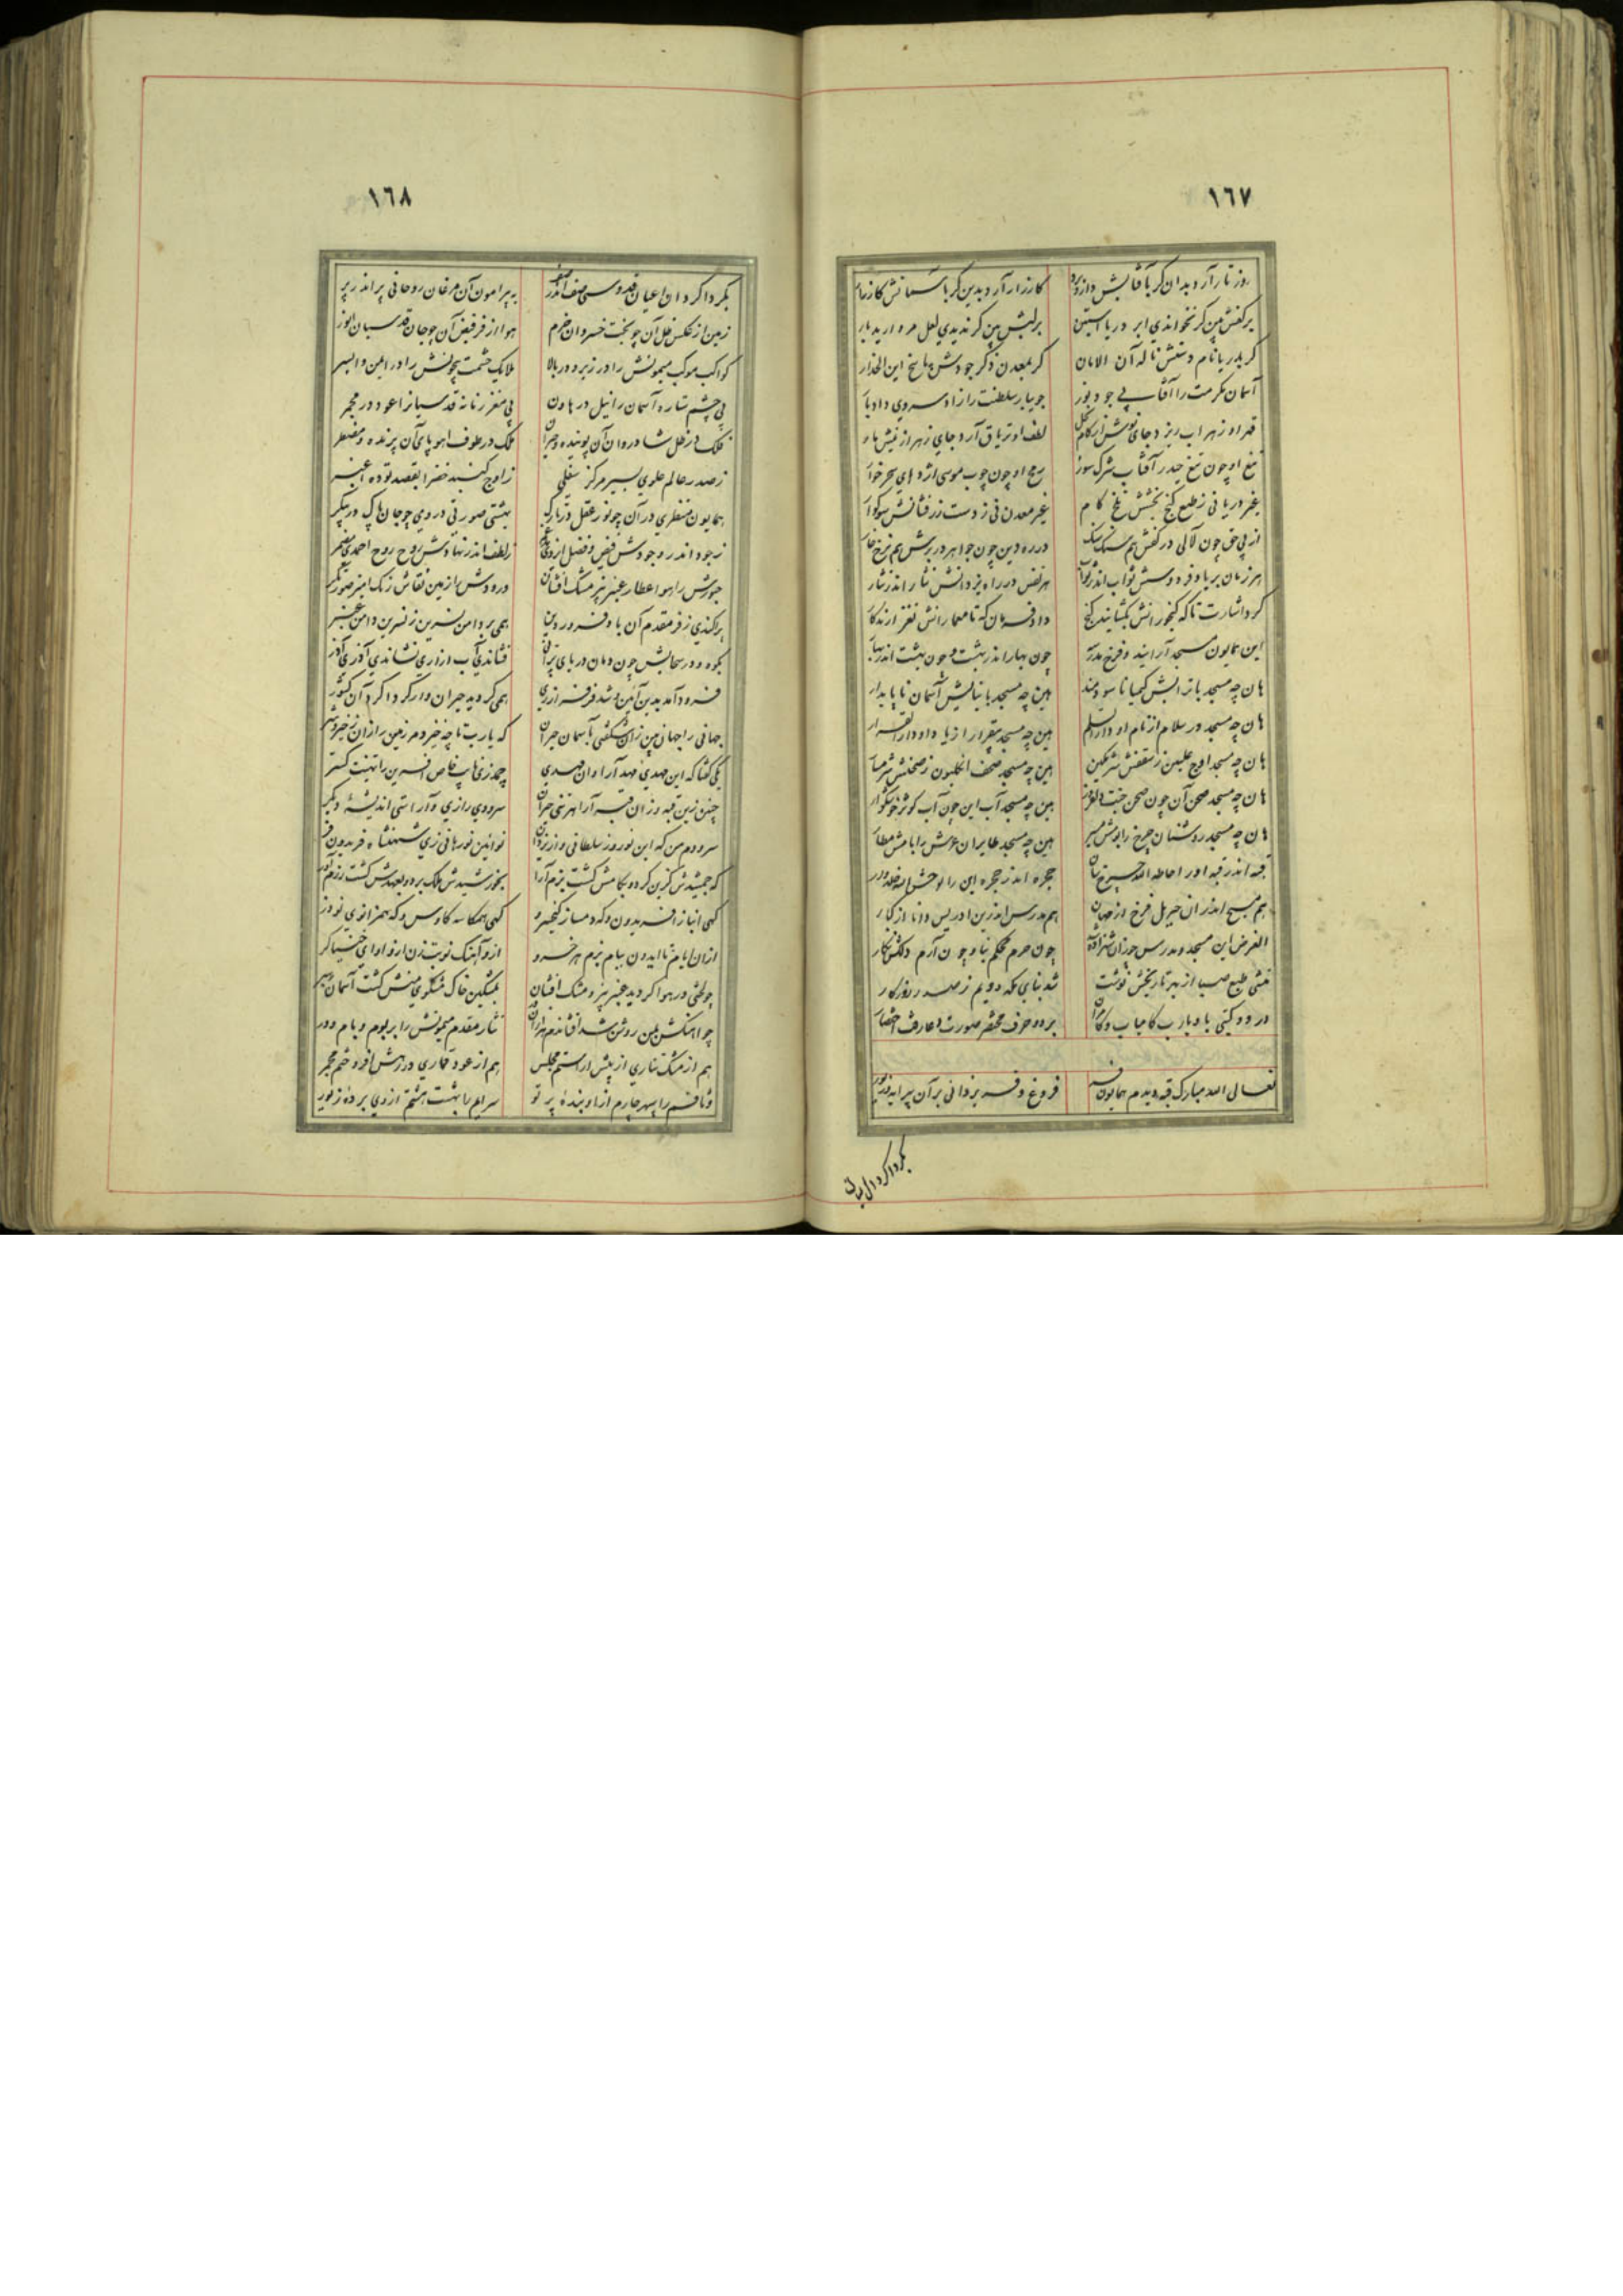 ١٦٧
روز تار آرد بدان گر بآفتابش
کارزار آرد بدین گر باسمانش کارزار
بر کفش بین گر نخواندی ابر دریا آستین
بر لبش بین گر ندیدی لعل مروارید بار
گر بدریا نام دستش ناله آن الامان
گر بمعدن ذکر جودش پاسخ این الحذار
آسمان مکرمت را آفتاب
جویبار سلطنت را زاد سروی
قهر او زهراب ریزد جای نوش
لطف او تریاق آرد جای زهر از نیش مار
تیغ او چون تیغ حیدر آفتاب شرک سوز
رمح او چون چوب موسی اژدهای
غیر دریا نی ز طبع گنج بخشش تلخ کام
غیر معدن نی ز دست زرفشانش سوگوار
از پی حق چون لآلی در کفش هم سنگ
در ره دین چون جواهر در برش هم نرخ خار
هر زمان بر یاد فردوسش ثواب اندر ثواب
هر نفس در راه یزدانش نثار اندر نثار
کرد اشارت تا که گنجورانش بگشایند گنج
داد فرمان که تا معمارانش نغز ارند کار
این همایون مسجد آرایند و فرخ مدرسه
چون بهار اندر بهشت و چون بهشت اندر بهار
هان چه مسجد با ترابش کیمیا نا سودمند
هین چه مسجد با بنایش آسمان نا پایدار
هان چه مسجد در سلام از نام او دارالسلم
هین چه مسجد بیقرار از یاد او دارالقرار
هان چه مسجد اوج علیین ز سقفش شرمگین
هین چه مسجد صحف انگلیون ز صحنش شرمسار
هان چه مسجد صحن آن چون صحن جنت دلفروز
هین چه مسجد آب این چون آب کوثر خوشگوار
هان چه مسجد روشنان چرخ را بومش مسیر
هین چه مسجد طایران عرش را بامش مطار
قبه اندر قبه او را حاطه الله چرخ سان
حجره اندر حجره این را
هم مسیح اندر ان جبریل فرخ از مهان
هم مدرس اندرین ادریس دانا از کبار
الغرض این مسجد و مدرس چو زان شهزاده شد
چون حرم محکم بنا و چون آرم دلکش نگار
منشی طبع صبا از بهر تاریخش نوشت
شد بنای مکه دویم ز صدر روزگار
در دو گیتی باد یارب کامیاب و کامران
بر دو حرف مختصر صورت دعا رفت اختصار
تعالی الله مبارک قبه دیدم همایون فر
فروغ و فر یزدانی بر آن پیرایه و زیور
بگرداگرد آن
١٦٨
بگرداگرد آن اعیان فردوسی صف اندر صف
به پیرامون آن مرغان روحانی پر اندر پر
زمین از عکس ظل آن چو بخت خسروان خرم
هوا از فر فیض آن چو جان قدسیان انور
کواکب موکب میمونش را در زیر و در بالا
ملایک حشمت بیچونش را در ایمن و ایسر
پی چشم ستاره آسمان را نیل در هاون
پی مغز زنانه قدسیانرا عود در مجمر
فلک در ظل شادروان آن پوینده و حیران
ملک در طوف اهو پای آن پرنده و مضطر
ز صدر عالم علوی بسیر مرکز سفلی
ز اوج گنبد خضرا بقصد توده اغبر
همایون منظری در آن چو نور عقل در تارک
بهشتی صورتی در وی چو جان پاک در پیکر
ز جود اندر وجودش فیض و فضل ایزدی مدغم
ز لطف اندر نهادش روح روح احمدی مضمر
عبورش را هوا عطار عنبر بیز مشک افشان
ورودش را زمین نقاش رنگ امیز صورتگر
پراکندی ز فر مقدم آن باد فروردین
همی بر دامن نسرین ز نسرین دامن عنبر
بکوه و در سحابش چون دمان دریای پر آتش
فشاندی آب ازاری نشاندی آذری آذر
فرود آمد بدین آئین و شد فر فر ازری
همی گردید حیران وار گرداگرد آن کشور
جهانی را جهان بین زان شگفتی بآسمان حیران
که یارب تا چه خیزد مر زمین را زان
یکی گفتا که این مهدی مهد آرا و ان مهدی
چمد زی باب خاص افسرین را تهنیت گستر
چنین زین قبه و زان قبه آرا هر تنی حیران
سرودی رازی و آراستی اندیشهٔ دیگر
سرودم من که این نوروز سلطانی
نوآئین نورهانی زی شهنشاه فریدون فر
که جمشیدش گزین کرد و بکامش گشت بزم آرا
بخورشیدش ملک برد و بعهدش گشت رزم آور
گهی انباز افریدون و گه دمساز کیخسرو
گهی همکاسه کاوس و گه همزانوی نوذر
ازان ایام تا ایدون بیام بزم هر خسرو
ازو آهنگ نوبت زن ازو اوای خنیاگر
چو لختی در هوا گردید عنبر بیز و مشک افشان
بمشکین خاک مشکوی منش گشت آسمان رهبر
چو اهنگش بمن روشن شد افشاندم هزاران جان
نثار مقدم میمونش را بر بوم و بام و در
هم از مشک تتاری از پیش اراستم مجلس
هم از عود قماری در رهش افروختم مجمر
وثاقم را سپهر چارم از او بندهٔ پرتو
سرایم را بهشت هشتم از وی بردهٔ زیور